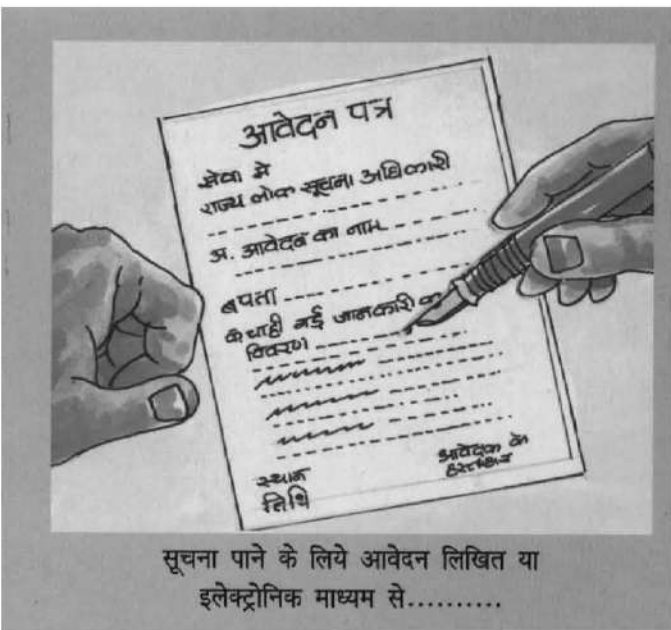 आवेदन पत्र
सेवा मे
राज्य लोक सूचना अधिकारी
अ. आवेदक का नाम
ब पता
क चाही गई जानकारी का
विवरण
स्थान
तिथि
आवेदक के
हस्ताक्षर
सूचना पाने के लिये आवेदन लिखित या
इलेक्ट्रोनिक माध्यम से..........